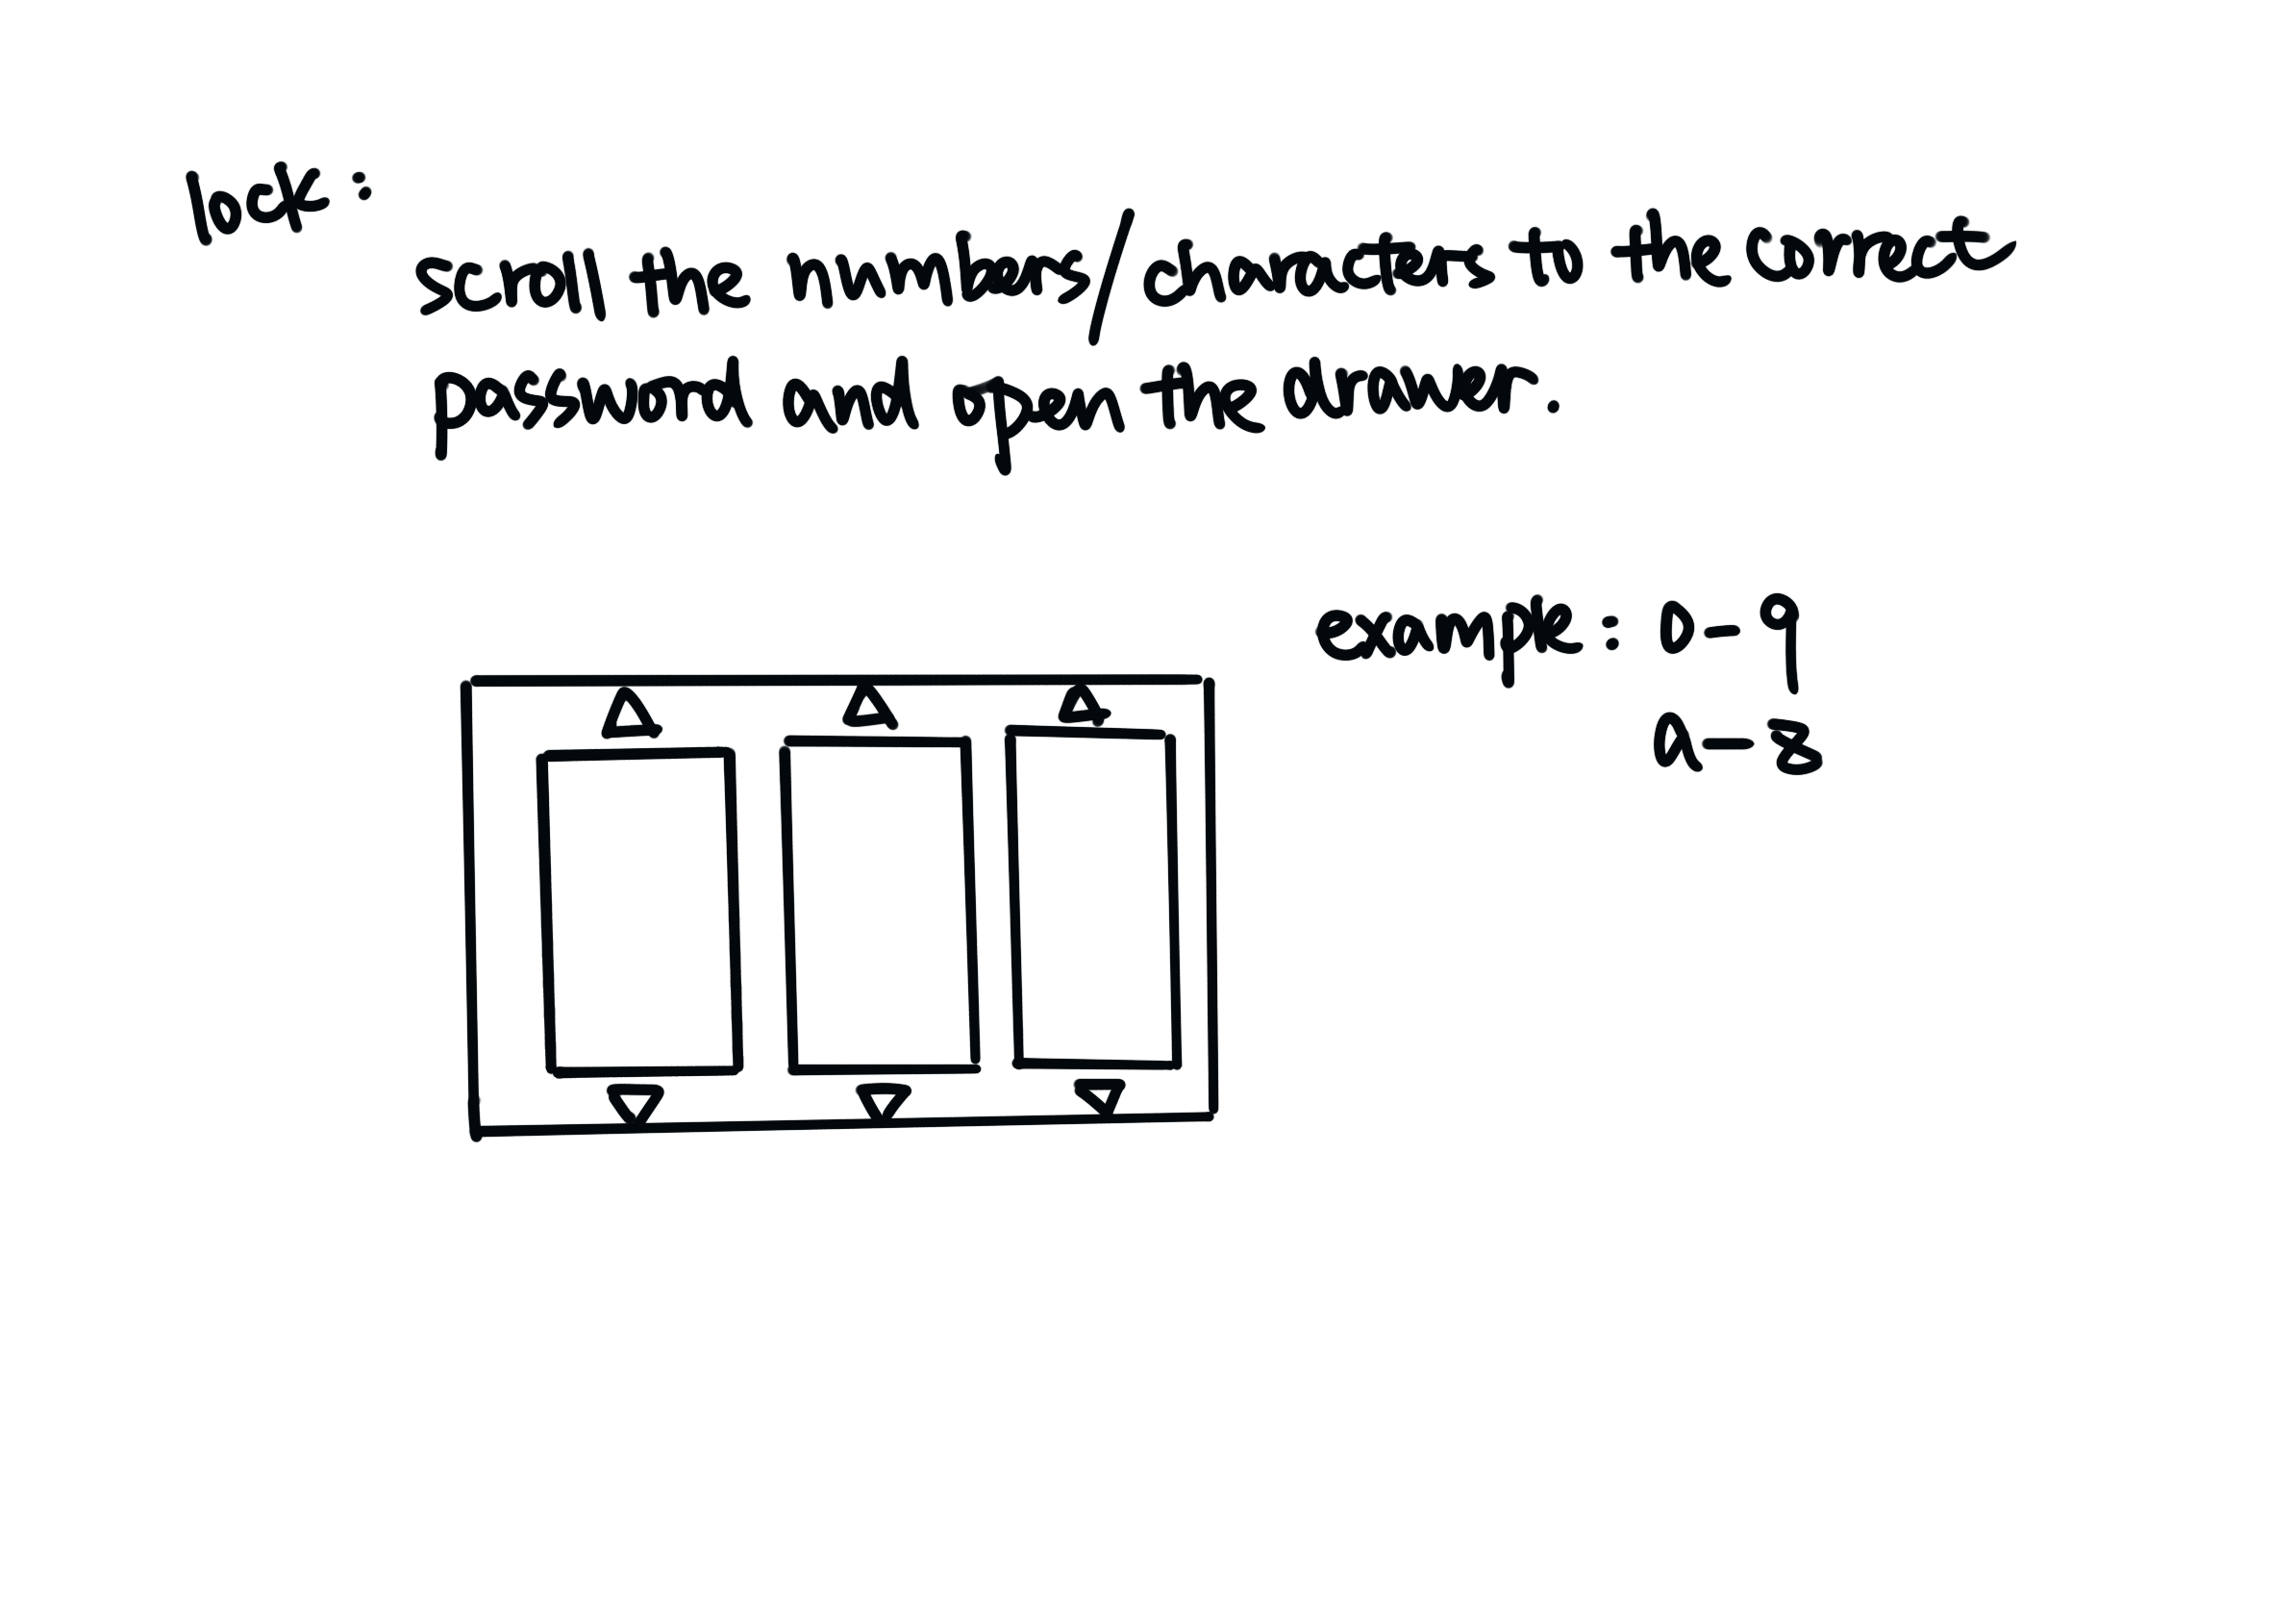 lock :
scroll the numbers/characters to the correct
password and open the drawer.
example : 0-9
a-z